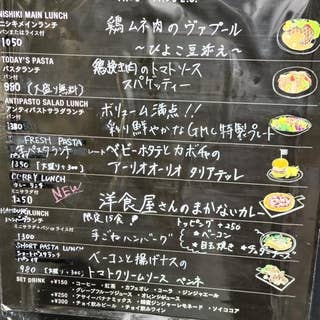 NISHIKI MAIN LUNCH
ニシキメインランチ
パンまたはライス付
1050
鶏ムネ肉のヴァプール
〜ひよこ豆添え〜
TODAY'S PASTA
パスタランチ
950 (大盛り無料)
鶏挽き肉のトマトソース
スパゲッティー
ANTIPASTO SALAD LUNCH
アンティパストサラダランチ
パン付
1380
ボリューム満点!!
彩り鮮やかなGMC特製プレート
FRESH PASTA
生パスタランチ
1390 (大盛り+300)
ベビーホタテとカボチャの
アーリオオーリオ タリアテッレ
CURRY LUNCH
カレーランチ
ミニサラダ付
1250
NEW
洋食屋さんのまかないカレー
限定15食!
トッピング +250
※ベーコン
※目玉焼き
※チェダーチーズ
ハンバーグランチ
パンまたはライス付
1300
手ごねハンバーグ
SHORT PASTA LUNCH
ショートパスタランチ
980 (大盛り+300)
ベーコンと揚げナスの
トマトクリームソース ペンネ
SET DRINK
+¥150 ・コーヒー ・紅茶 カフェオレ ・コーラ ・ジンジャエール
・グレープフルーツジュース ・オレンジジュース
+¥250
+¥300 ・チョイ飲みビール ・チョイ飲みワイン